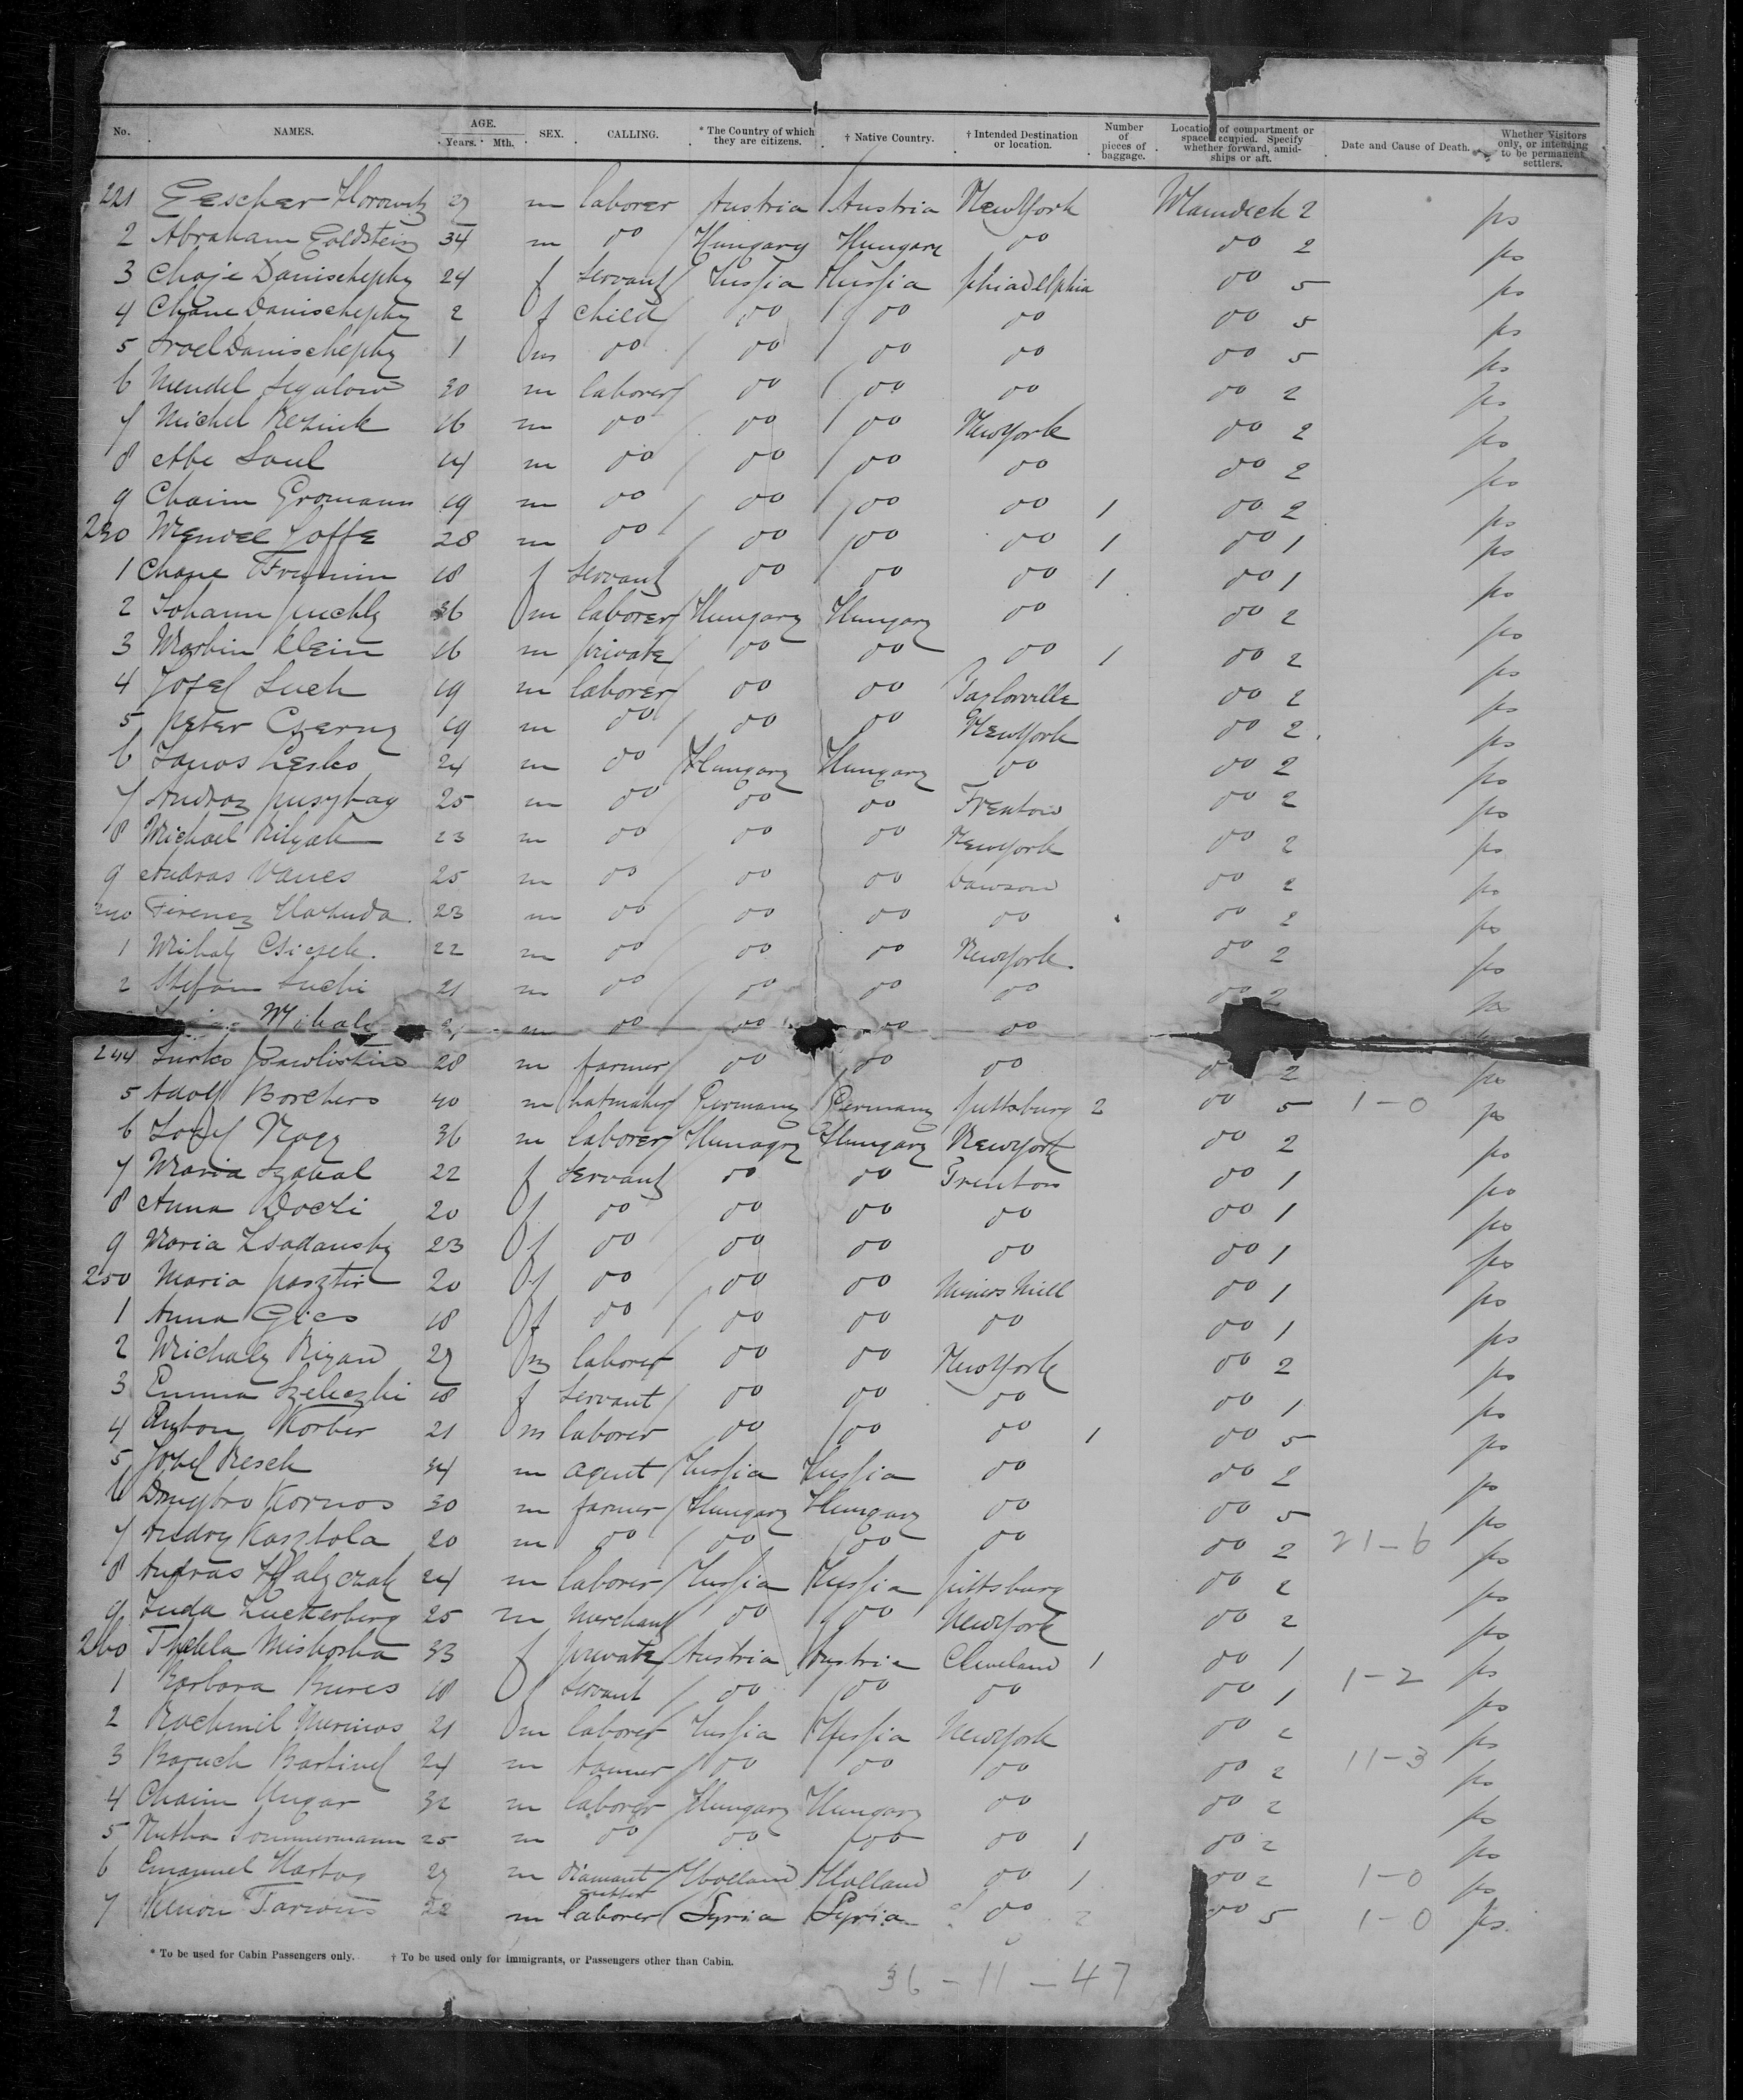 No. NAMES. AGE. Years. Mth. SEX. CALLING. * The Country of which they are citizens. † Native Country. † Intended Destination or location. Number of pieces of baggage. Location of compartment or space occupied. Specify whether forward, amidships or aft. Date and Cause of Death. Whether Visitors only, or intending to be permanent settlers.
221 Horowitz 27 m laborer Austria Austria New York Maindeck 2 ps
2 Abraham Goldstein 34 m do Hungary Hungary do do 2 ps
3 Chaje Danischepky 24 f servant Russia Russia phiadelphia do 5 ps
4 Chane Danischepky 2 f child do do do do 5 ps
5 Sroel Danischepky 1 m do do do do do 5 ps
6 Mendel Segalow 30 m laborer do do do do 2 ps
7 Michel Resnik 16 m do do do New York do 2 ps
8 Abe Saul 14 m do do do do do 2 ps
9 Chaim Gromann 19 m do do do do 1 do 2 ps
230 Mendel Joffe 28 m do do do do 1 do 1 ps
1 Chane Frumin 18 f servant do do do 1 do 1 ps
2 Johann 36 m laborer Hungary Hungary do do 2 ps
3 Martin Klein 16 m private do do do 1 do 2 ps
4 Josef Such 19 m laborer do do Taylorville do 2 ps
5 Peter Cserny 19 m do do do New York do 2 ps
6 Janos Lesko 24 m do Hungary Hungary do do 2 ps
7 Andraz 25 m do do do Trenton do 2 ps
8 Michael 23 m do do do New York do 2 ps
9 Andras Vanes 25 m do do do Dawson do 2 ps
240 Ferencz 23 m do do do do do 2 ps
1 Mihaly 22 m do do do New York do 2 ps
2 Stefan Suchi 21 m do do do do do 2 ps
Mihaly m do do do do
244 28 m farmer do do do do 2 ps
5 Adolf Borchers 40 m hatmaker Germany Germany pittsburg 2 do 5 1-0 ps
6 Josef Nagy 36 m laborer Hunagry Hungary New York do 2 ps
7 Maria 22 f servant do do Trenton do 1 ps
8 Anna Doczi 20 f do do do do do 1 ps
9 Maria Zsadansky 23 f do do do do do 1 ps
250 Maria Pasztir 20 f do do do Miners Mill do 1 ps
1 Anna 18 f do do do do do 1 ps
2 Michaly 27 m laborer do do New York do 2 ps
3 Emma 18 f servant do do do do 1 ps
4 Anton Korber 21 m laborer do do do 1 do 5 ps
5 Josef Resch 34 m agent Russia Russia do do 2 ps
6 Dmytro Kornos 30 m farmer Hungary Hungary do do 5 ps
7 Andry Kasztola 20 m do do do do do 2 21-6 ps
8 Andras 24 m laborer Russia Russia pittsburg do 2 ps
9 Juda Zuckerberg 25 m merchant do do New York do 2 ps
260 Thekla Miskorba 33 f private Austria Austria Cleveland 1 do 1 ps
1 Barbara Bures 18 f servant do do do do 1 1-2 ps
2 Rachmil 21 m laborer Russia Russia New York do 2 ps
3 Baruch 24 m do do do do 2 11-3 ps
4 Chaim Ungar 32 m laborer Hungary Hungary do do 2 ps
5 Sommermann 25 m do do do do 1 do 2 ps
6 Emanuel Hartog 27 m diamant cutter Holland Holland do 1 do 2 1-0 ps
7 22 m laborer Syria Syria do 2 do 5 1-0 ps.
* To be used for Cabin Passengers only. † To be used only for Immigrants, or Passengers other than Cabin.
36 - 11 - 47